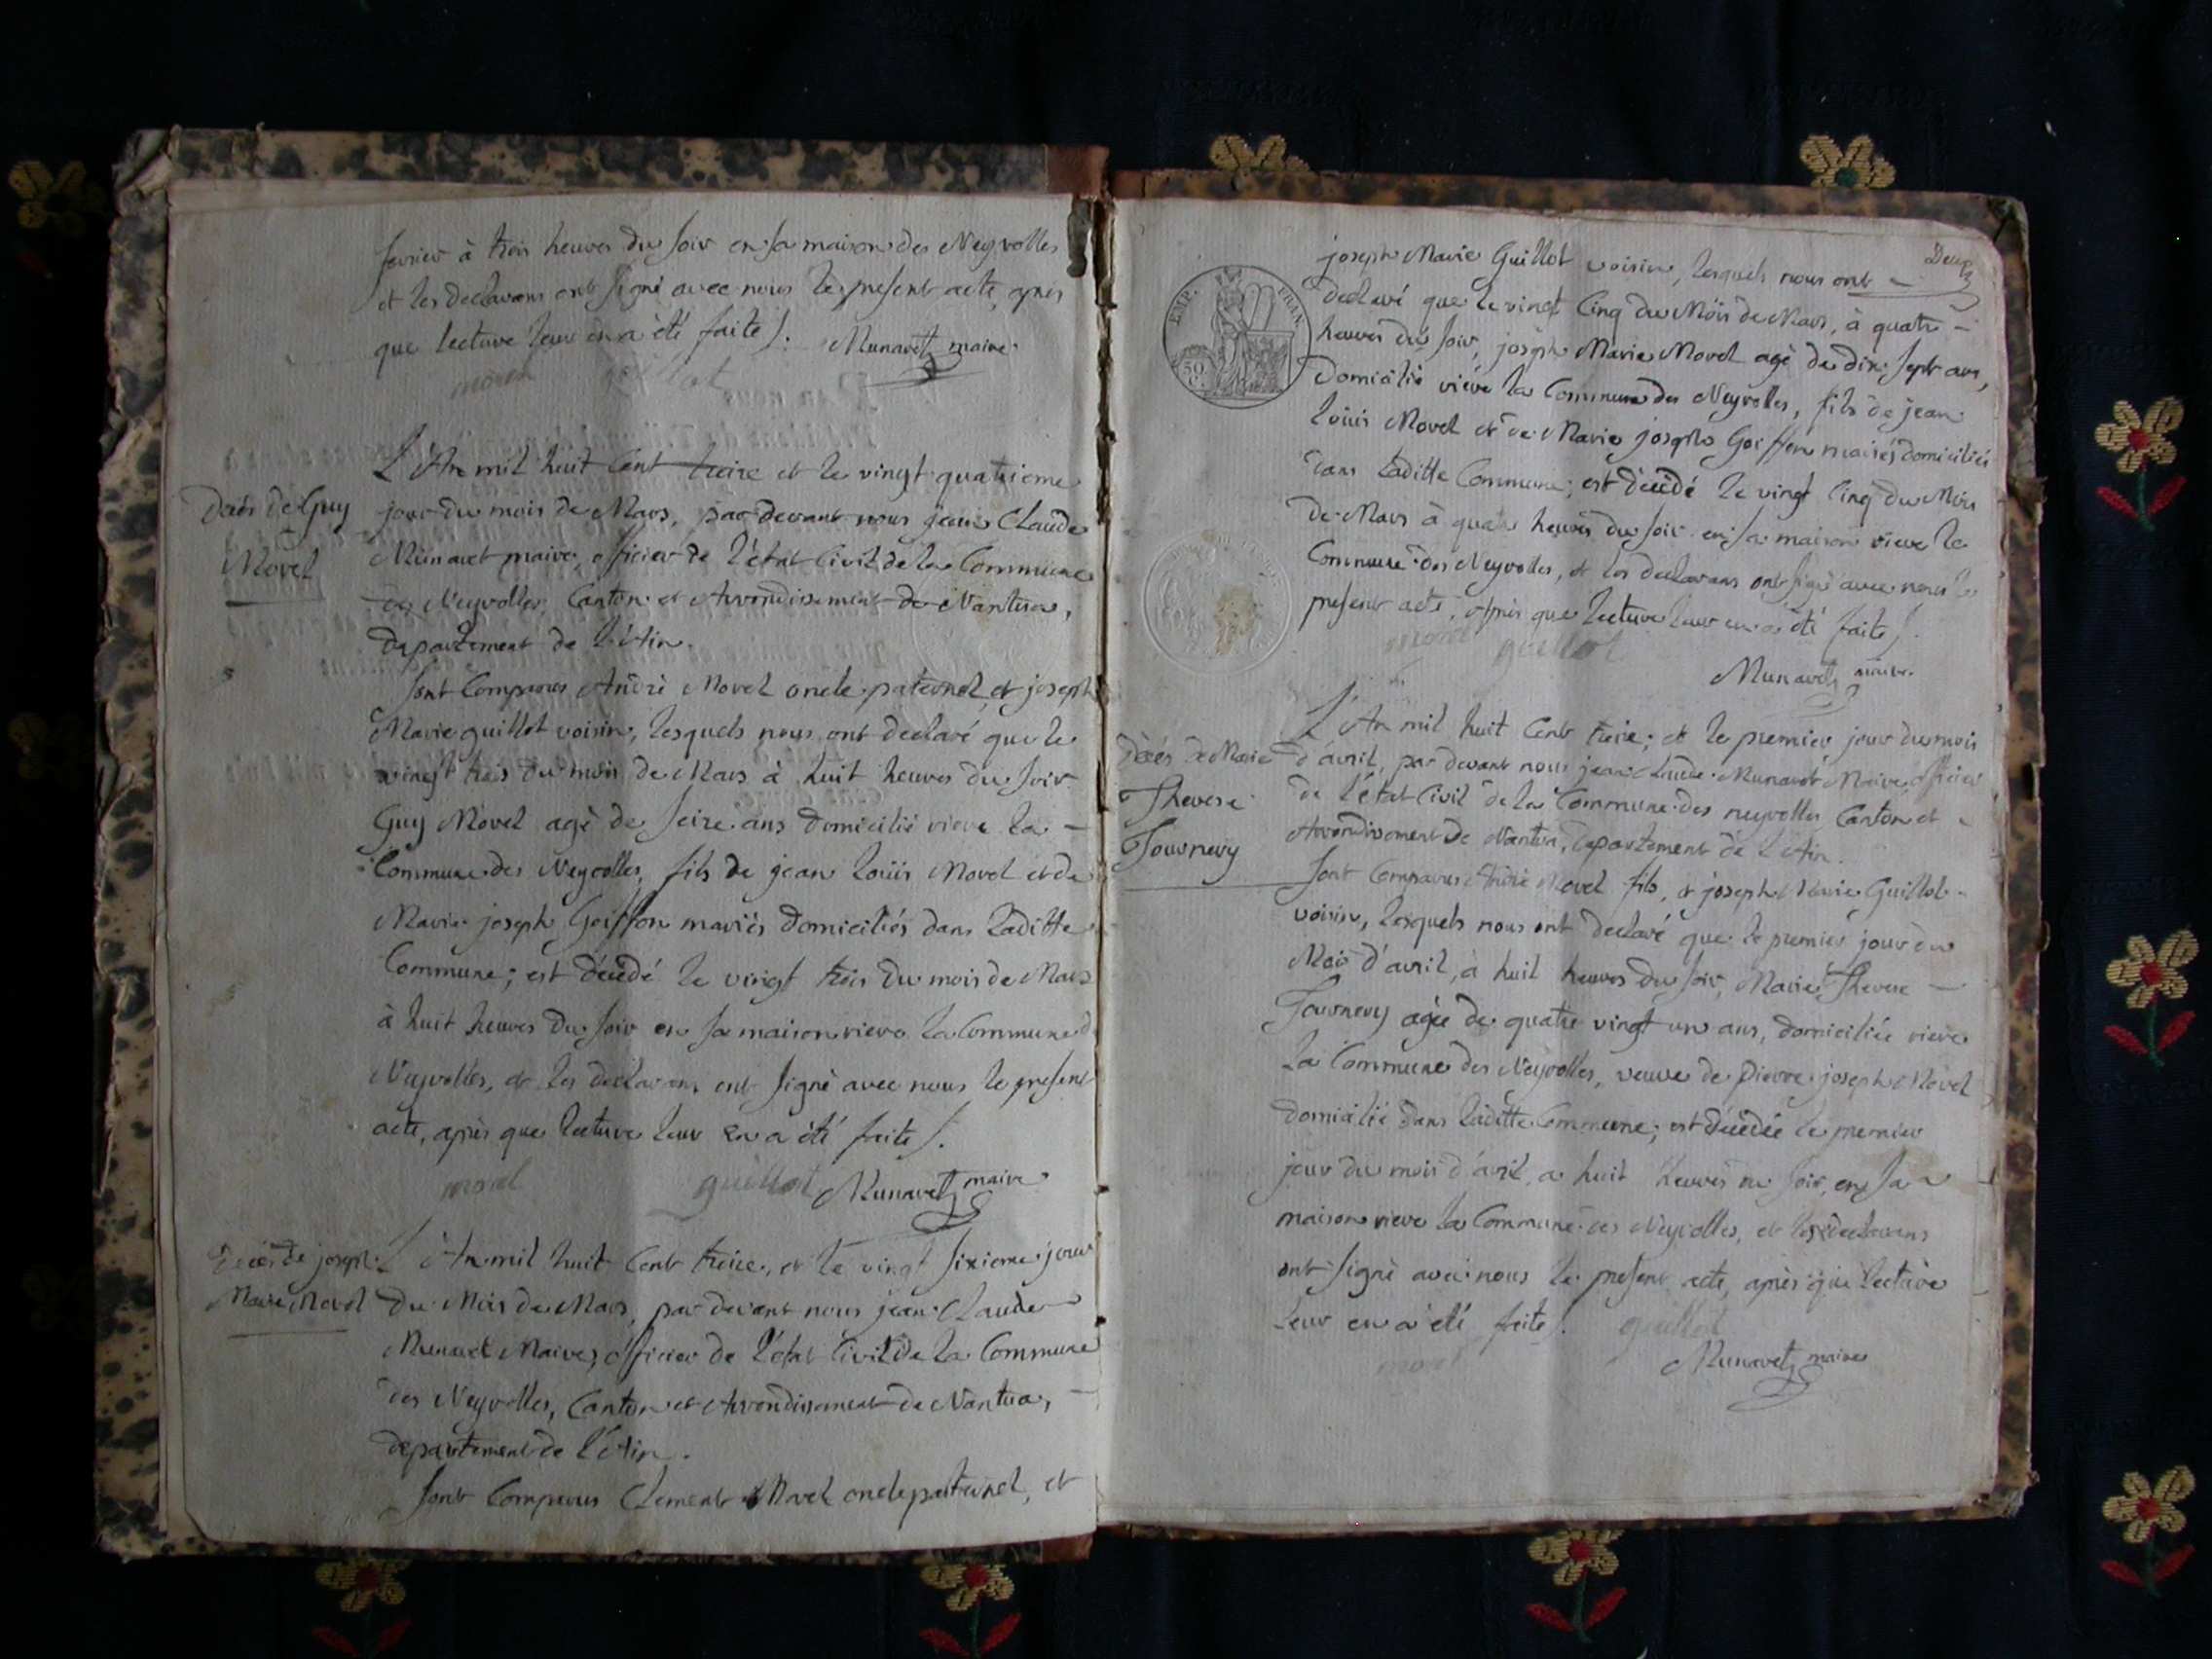 fevrier à trois heures du soir en sa maison des Neyrolles
et les declarans ont signé avec nous le present acte, apres
que lecture leur en a été faite /. Munaret maire
morel guillot
Decés de Guy
Morel
L'An mil huit cent treize et le vingt quatrieme
jour du mois de Mars, par devant nous jean Claude
Munaret maire, officier de l'état Civil de la Commune
des Neyrolles, Canton et Arrondissement de Nantua,
departement de l'Ain.
Sont Comparus André Morel oncle paternel, et joseph
Marie guillot voisin, lesquels nous ont declaré que le
vingt trois du mois de Mars à huit heures du soir
Guy Morel agé de seize ans domicilié riere la
Commune des Neyrolles, fils de jean loüis Morel et de
Marie joseph Goiffon mariés domiciliés dans laditte
Commune; est décédé le vingt trois du mois de Mars
à huit heures du soir en sa maison riere la Commune d
Neyrolles, et les declarans ont signé avec nous le present
acte, après que lecture leur en a été faite /.
morel guillot Munaret maire
Decés de joseph
Marie Morel
L'An mil huit Cent treize, et le vingt sixieme jour
du Mois de Mars, par devant nous jean Claude
Munaret Maire, officier de l'état Civil de la Commune
des Neyrolles, Canton et Arrondissement de Nantua,
departement de l'Ain.
Sont Comparus Clement Morel oncle paternel, et
Deux
EMP. FRAN.
50 C.
joseph Marie Guillot voisin, lesquels nous ont
declaré que le vingt Cinq du Mois de Mars, à quatre
heures du soir, joseph Marie Morel agé de dix sept ans,
Domicilié riére la Commune des Neyrolles, fils de jean
loüis Morel et de Marie joseph Goiffon mariés domiciliés
dans laditte Commune; est décédé le vingt Cinq du Mois
de Mars à quatre heures du soir en sa maison riere la
Commune des Neyrolles, et les declarans ont signé avec nous le
present acte, après que lecture leur en a été faite /.
morel guillot
Munaret maire
Décés de Marie
Therese
Tournery
L'An mil huit Cent treize; et le premier jour du mois
d'avril, par devant nous jean Claude Munaret Maire officier
de l'état Civil de la Commune des neyrolles Canton et
Arrondissement de Nantua, departement de l'Ain.
Sont Comparus André Morel fils, et joseph Marie Guillot
voisin, lesquels nous ont declaré que le premier jour du
Mois d'avril, à huit heures du soir, Marie Therese
Tournery agée de quatre vingt un ans, domiciliée riere
la Commune des Neyrolles, veuve de pierre joseph Morel
domicilié dans laditte Commune; est décédée le premier
jour du mois d'avril, a huit heures du soir, en sa
maison riere la Commune des Neyrolles, et les declarans
ont signé avec nous le present acte, après que lecture
leur en a été faite /. guillot
morel Munaret maire